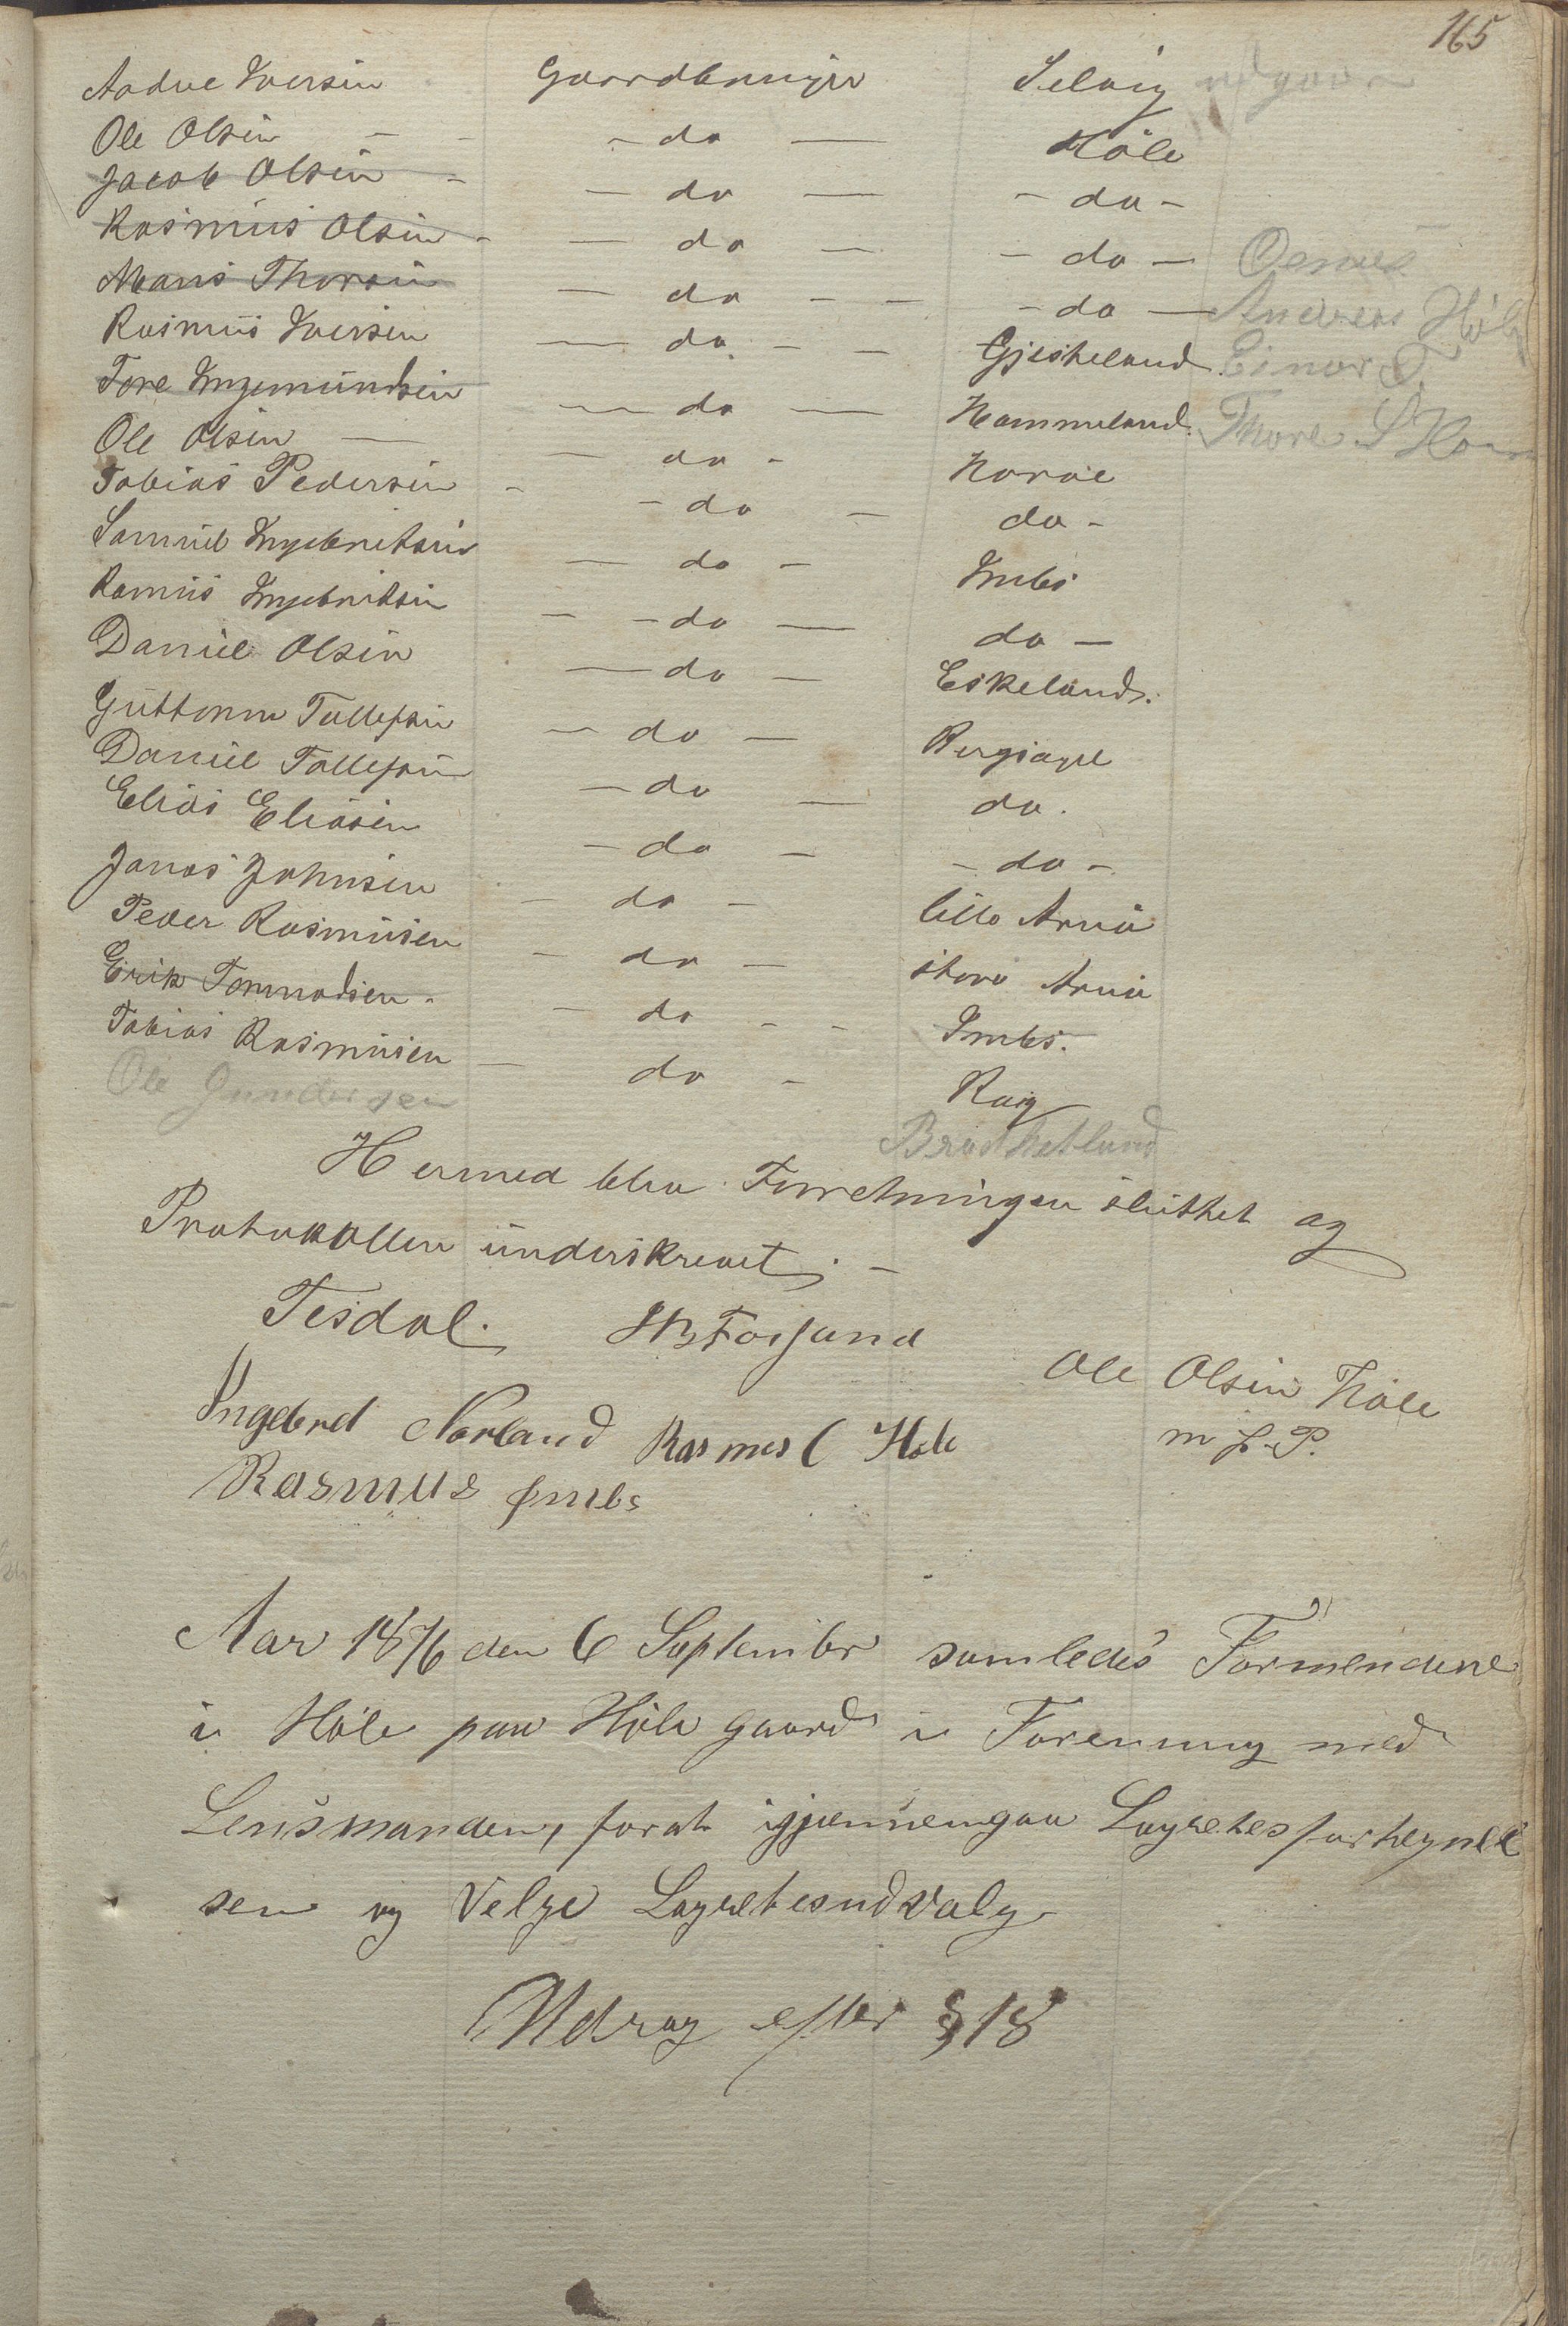 165
Aadne Iversen Gaardbruger Selvig udgaar
Ole Olsen - - - do - Höle
Jacob Olsen - - do - - do -
Rasmus Olsen - - do - - do - Oemus
Mons Thorsen - do - - - do - Andreas Höle
Rasmus Iversen - do - - Gjeskeland Einar T.
Tore Ingemundsen - do - Hammeland. Thore S
Ole Olsen - - do - Horve
Tobias Pedersen - - do - do -
Samuel Ingebretsen - do - Imbs
Rasmus Ingebretsen - - do - do -
Daniel Olsen - do - Eskeland.
Guttorm Tollefsen - do - Bergsagel
Daniel Tollefsen - do - do.
Elias Eliasen - do - - do -
Jonas Johnsen - do - lille Aniö
Peder Rasmusen - do - store Aniö
Erik Tormodsen - - do - - Imbs.
Tobias Rasmusen - do - Røig
Ole Gundersen Bradhetland
Hermed blev Forretningen sluttet og
Protokollen underskrevet. -
Tesdal. HB Forsand
Ole Olsen Höle
Ingebret Norland Rasmus C Hole m f. P.
Rasmus Imbs
Aar 1876 den 6 September samledes Formendene
i Höle paa Höle gaard i Forening med
Lensmanden, forat igjennemgaa Lagretesfortegnel
sen og Velge Lagretesudvalg
Udrag efter § 18